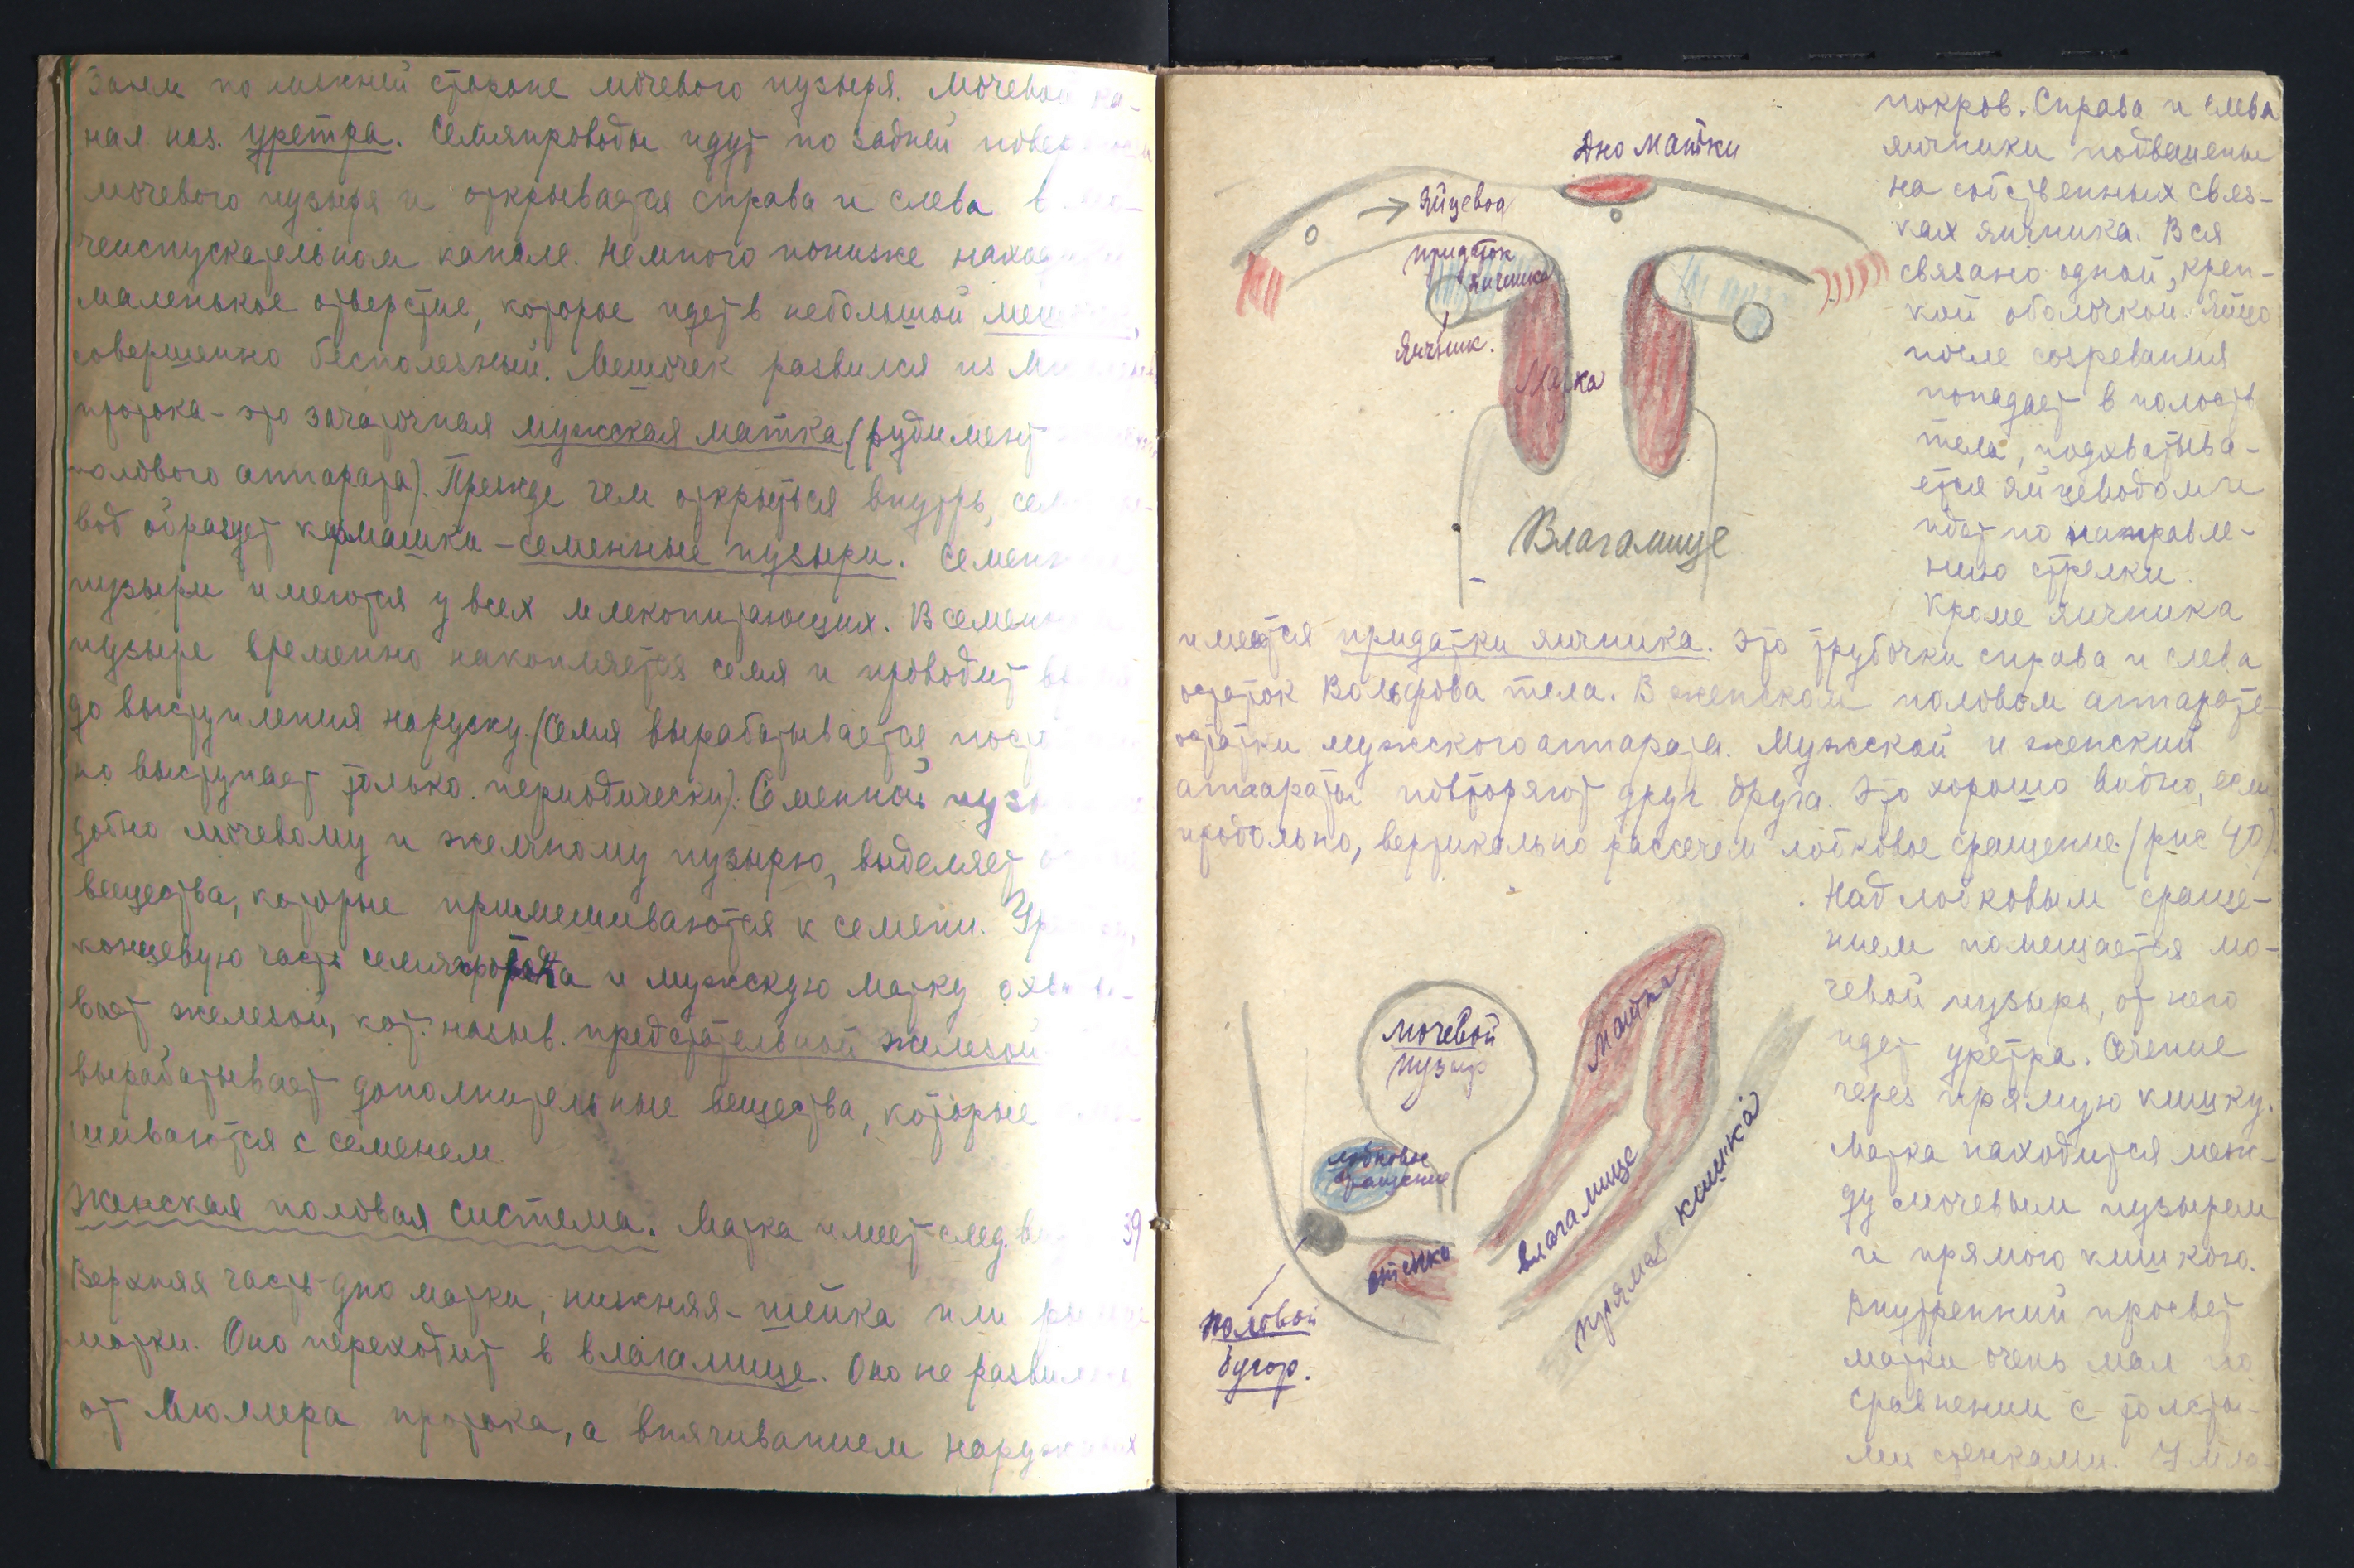 Затем по нижней стороне мочевого пузыря. Мочевой ка-
нал наз. уретра. Семяпроводы идут по задней поверхности
мочевого пузыря и открывается справа и слева в мо-
чеиспускательном канале. Немного пониже находится
маленькое отверстие, которое идет в небольшой мешочек,
совершенно бесполезный. Мешочек развился из
протока - это зачаточная мужская матка (рудимент
полового аппарата). Прежде чем открыться внутрь, семяпро-
вод образует кармашки - семенные пузыри. Семенные
пузыри имеются у всех млекопитающих. В семенном
пузыре временно накопляется семя и проводит
до выступления наружу. (Семя вырабатывается
но выступает только периодически). Семенной
добно мочевому и желчному пузырю, выделяет
вещества, которые примешиваются к семени.
концевую часть семяпровода и мужскую матку охваты-
вает железой, кот. назыв. предстательной железой
вырабатывает дополнительные вещества, которые
шиваются с семенем.
Женская половая система. Матка имеет след. вид 39
Верхняя часть дно матки, нижняя - шейка или
матки. Оно переходит в влагалище. Оно не развилось
от Мюллера протока, а впячиванием наружных
покров. Справа и слева
яичники подвешены
на собственных связ-
ках яичника. Вся
связано одной, креп-
кой оболочкой. Яйцо
после созревания
попадает в полость
тела, подхватыва-
ется яйцеводом и
идет по направле-
нию стрелки.
Кроме яичника
имеется придатки яичника. Это трубочки справа и слева
остаток Вольфова тела. В женском половом аппарате
остатки мужского аппарата. Мужской и женский
аппараты повторяют друг друга. Это хорошо видно, если
продольно, вертикально рассечем лобковое сращение. (рис 40).
Дно матки
яйцевод
придаток
яичника
яичник.
Матка
Влагалище
Над лобковым сраще-
нием помещается мо-
чевой пузырь, от него
идет уретра. Сечение
через прямую кишку.
Матка находится меж-
ду мочевым пузырем
и прямою кишкою.
Внутренний просвет
матки очень мал по
сравнении с толсты-
ми стенками. У мла-
мочевой
пузырь
матка
лобковое
сращение
влагалище
прямая кишка
стенка
половой
бугор.